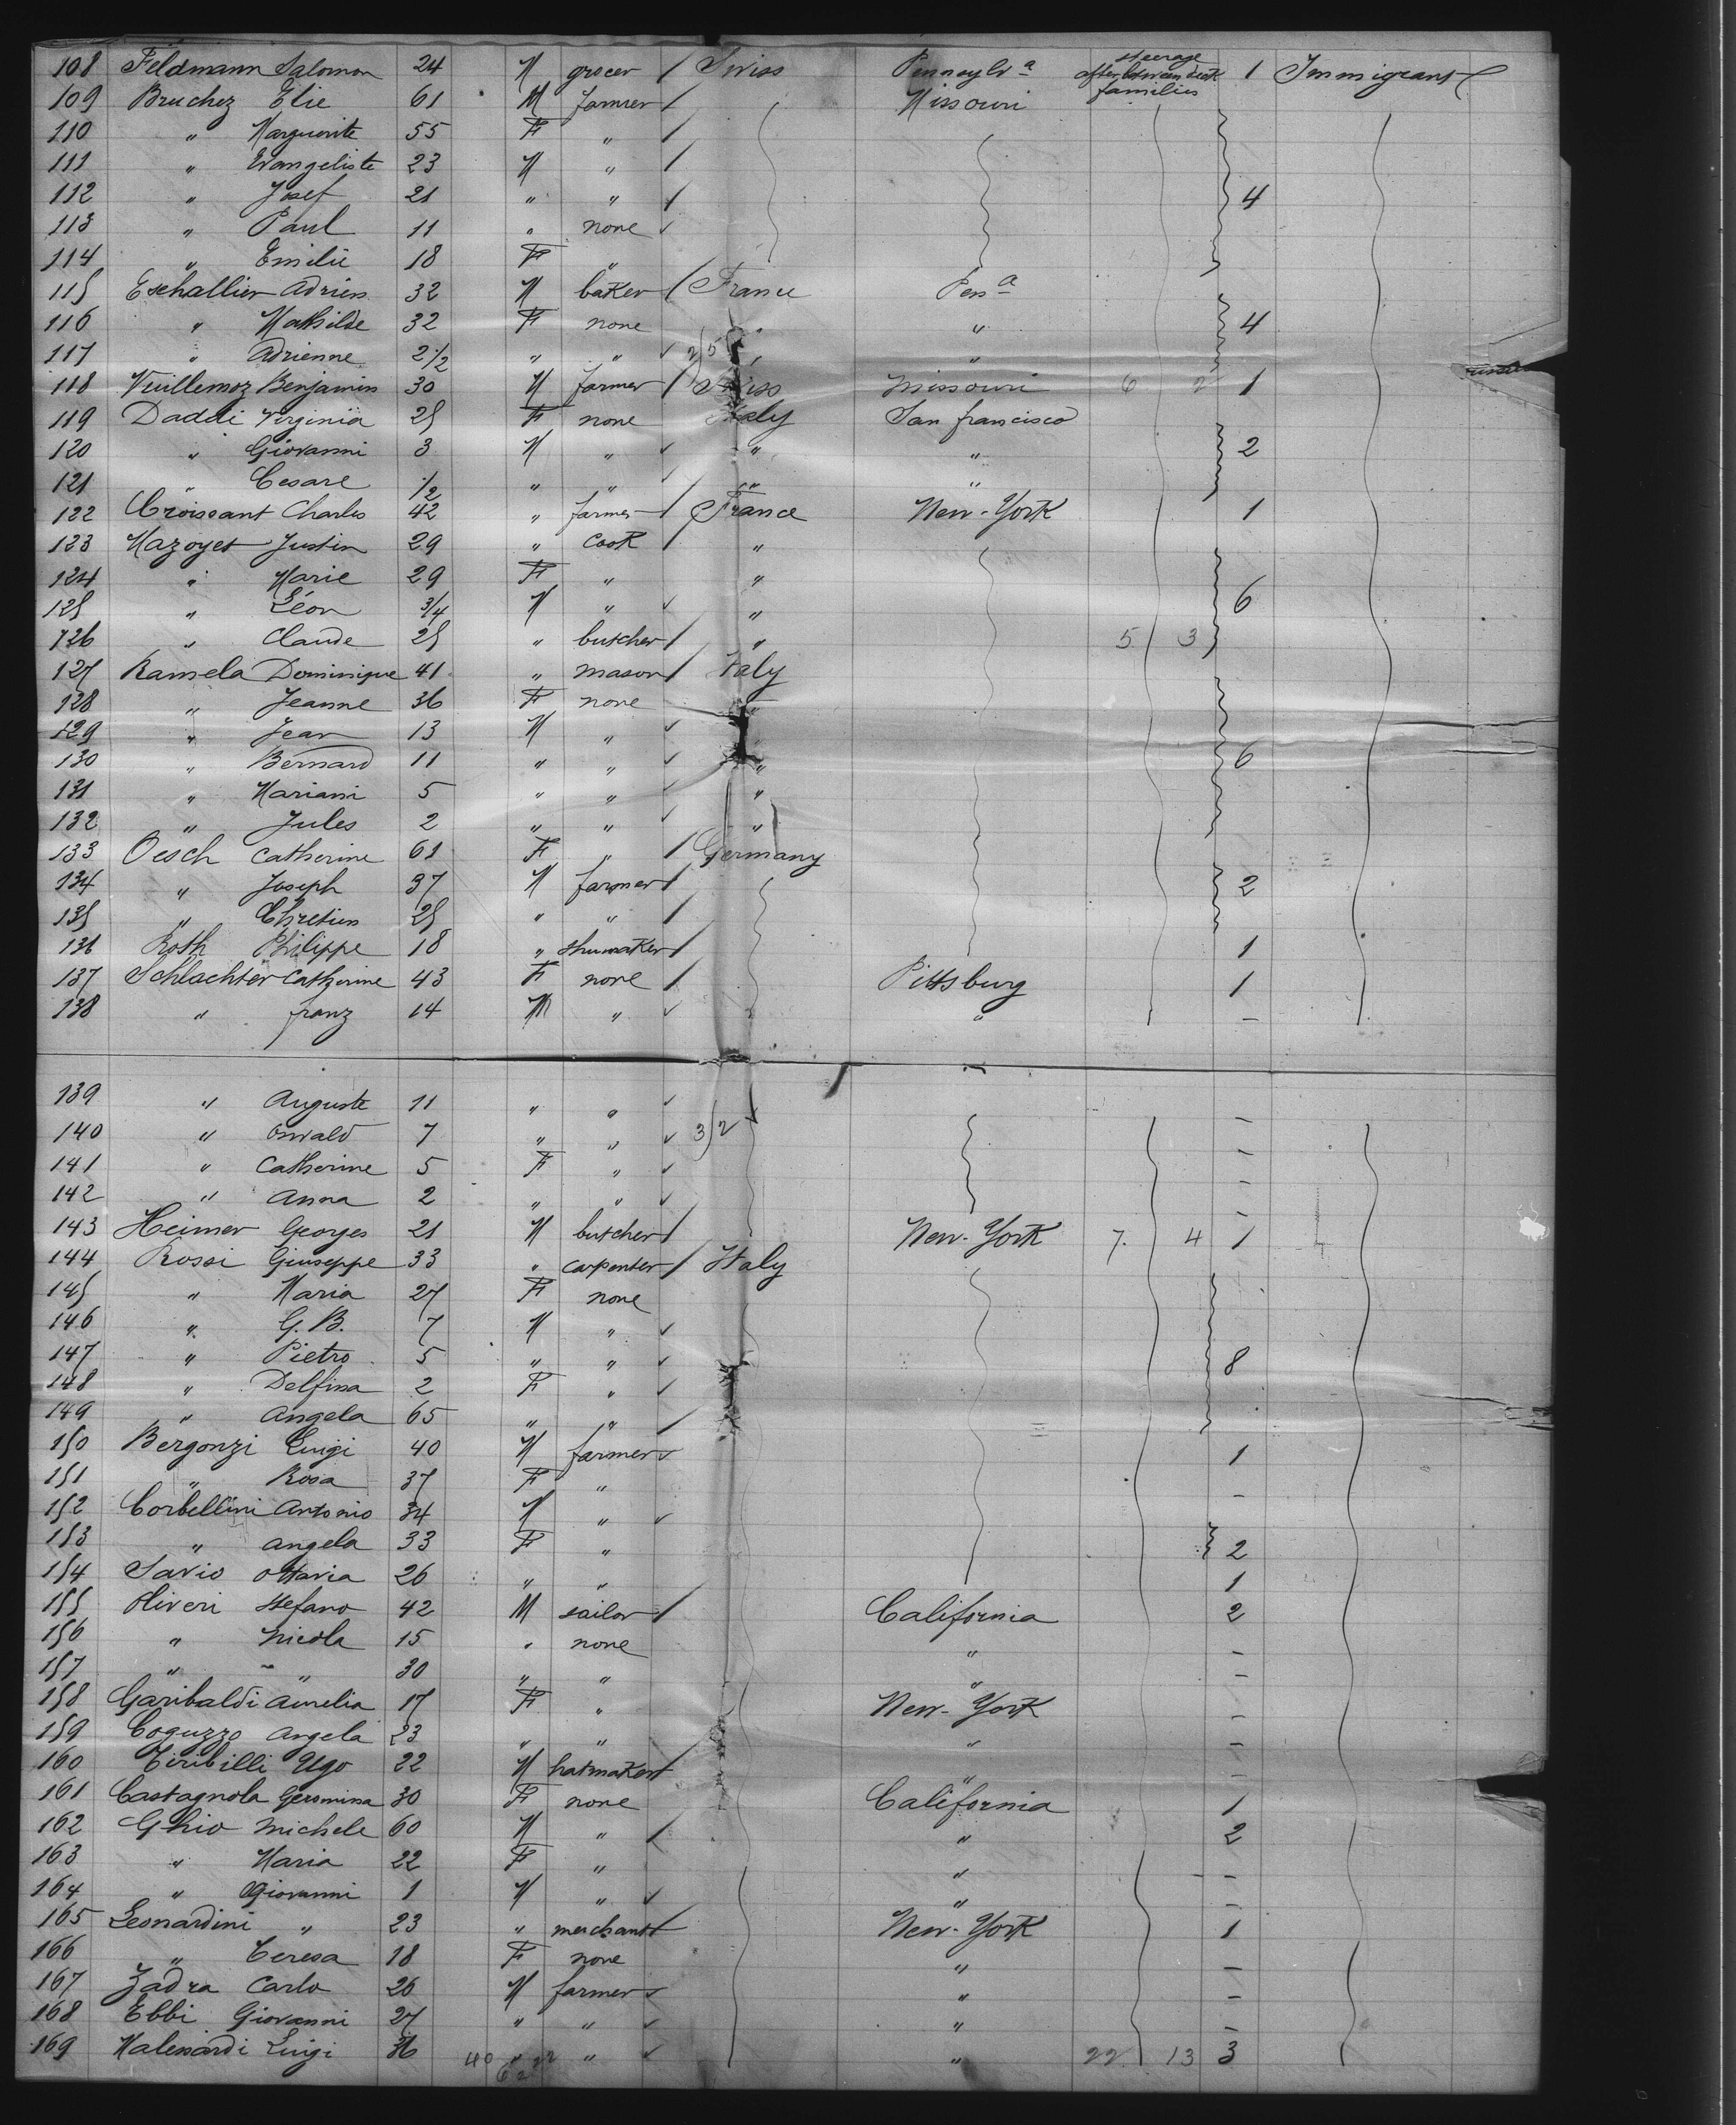 108 Feldmann Salomon 24 M grocer / Swiss Pennsylv a steerage after between deck families 1 Immigrant
109 Bruchez Elie 61 M farmer / Missouri
110 " Marguerite 55 F " /
111 " Evangeliste 23 M " /
112 " Josef 21 " " / 4
113 " Paul 11 " none ✓
114 " Emilie 18 F "
115 Eschallier Adrien 32 M baker / France Pen a
116 " Mathilde 32 F none " 4
117 " Adrienne 2 1/2 " " ✓ 2/5 " "
118 Vuillemoz Benjamin 30 M farmer / Swiss Missouri 6 2 1
119 Daddi Virginia 25 F none Italy San francisco
120 " Giovanni 3 M " ✓ " " 2
121 " Cesare 1/2 " " ✓ " "
122 Croissant Charles 42 " farmer / France New-York 1
123 Mazoyer Justin 29 " cook / "
124 " Marie 29 F " "
125 " Léon 3/4 M " ✓ " 6
126 " Claude 25 " butcher / " 5 3
127 Ramela Dominique 41 " mason / Italy
128 " Jeanne 36 F none "
129 " Jean 13 M " ✓
130 " Bernard 11 " " ✓ " 6
131 " Mariani 5 " " ✓ "
132 " Jules 2 " " ✓ "
133 Oesch Catherine 61 F " / Germany
134 " Joseph 37 M farmer / 2
135 " Chretien 25 " " /
136 Roth Philippe 18 " shumaker / 1
137 Schlachter Catherine 43 F none / Pittsburg 1
138 " franz 14 M " ✓ " –
139 " Auguste 11 " " ✓ –
140 " Oswald 7 " " ✓ 3/2 –
141 " Catherine 5 F " ✓ –
142 " Anna 2 " " ✓ –
143 Heimer Georges 21 M butcher / New-York 7. 4 1
144 Rossi Giuseppe 33 " carpenter / Italy
145 " Maria 27 F none
146 " G. B. 7 M " ✓
147 " Pietro 5 " " ✓ 8
148 " Delfina 2 F " ✓
149 " Angela 65 " " /
150 Bergonzi Luigi 40 M farmer ✓ 1
151 " Rosa 37 F " –
152 Corbellini Antonio 34 M " ✓
153 " Angela 33 F " 2
154 Savio Ottavia 26 " " 1
155 Oliveri Stefano 42 M sailor / California 2
156 " Nicola 15 " none " –
157 " " 30 " " " –
158 Garibaldi Aurelia 17 F " New-York –
159 Coguzzo Angela 23 " " " –
160 Tiribilli Ugo 22 M hatmaker / " –
161 Castagnola Geromina 30 F none California 1
162 Ghio Michele 60 M " / " 2
163 " Maria 22 F " " –
164 " Giovanni 1 M " ✓ " –
165 Leonardini " 23 " merchant / New-York 1
166 " Teresa 18 F none " –
167 Zadra Carlo 26 M farmer ✓ " –
168 Ebbi Giovanni 27 " " ✓ " –
169 Luigi 36 40 " " ✓ " 22. 13 3